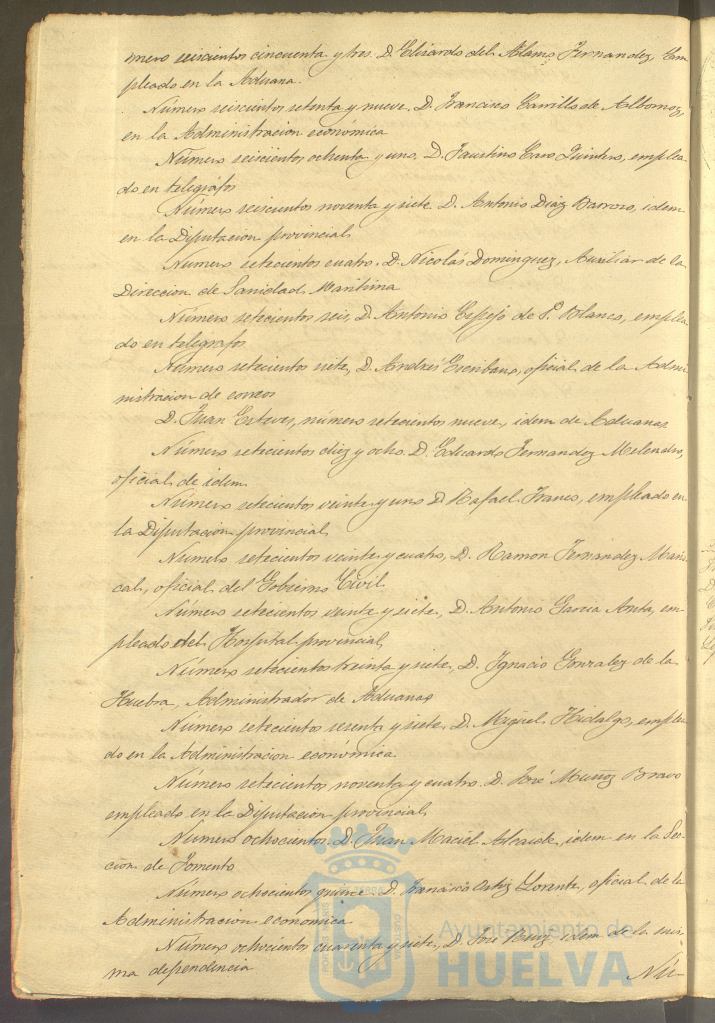 mero seiscientos cincuenta y tres. D. Elisardo del Alamo Fernandez, em
pleado en la Aduana.
Número seiscientos setenta y nueve. D. Francisco Carrillo de Albornoz,
en la Administracion económica
Número seiscientos ochenta y uno, D. Faustino Caro Quintero, emplea
do en telegráfos
Número seiscientos noventa y siete. D. Antonio Diaz Barroso, idem
en la Diputacion provincial
Número setecientos cuatro. D. Nicolás Dominguez, Auxiliar de la
Direccion de Sanidad Maritima
Número setecientos seis, D. Antonio Espejo de P. Blanco, emplea
do en telegrafos
Número setecientos siete, D. Andrés Escribano, oficial de la Admi
nistracion de correos
D. Juan Esteves, número setecientos nueve, idem de Aduanas
Número setecientos diez y ocho. D. Eduardo Fernandez Melendro,
oficial de idem
Número setecientos veinte y uno D. Rafael Franco, empleado en
la Diputacion provincial
Número setecientos veinte y cuatro, D. Ramon Fernandez Maris
cal, oficial del Gobierno Civil.
Número setecientos veinte y siete, D. Antonio Garcia Anta, em
pleado del Hospital provincial
Número setecientos treinta y siete, D. Ignacio Gonzalez de la
Huebra, Administrador de Aduanas
Número setecientos sesenta y siete, D. Miguel Hidalgo, emplea
do en la Administracion económica
Número setecientos noventa y cuatro. D. José Muñoz Bravo
empleado en la Diputacion provincial
Número ochocientos. D. Juan Maciel Alcaide, idem en la Sec
cion de Fomento
Número ochocientos quince. D. Francisco Ortiz Lorente, oficial de la
Administracion economica
Número ochocientos cuarenta y siete, D. José Ruiz idem de la mis
ma dependencia
Nú-
Ayuntamiento de
HUELVA